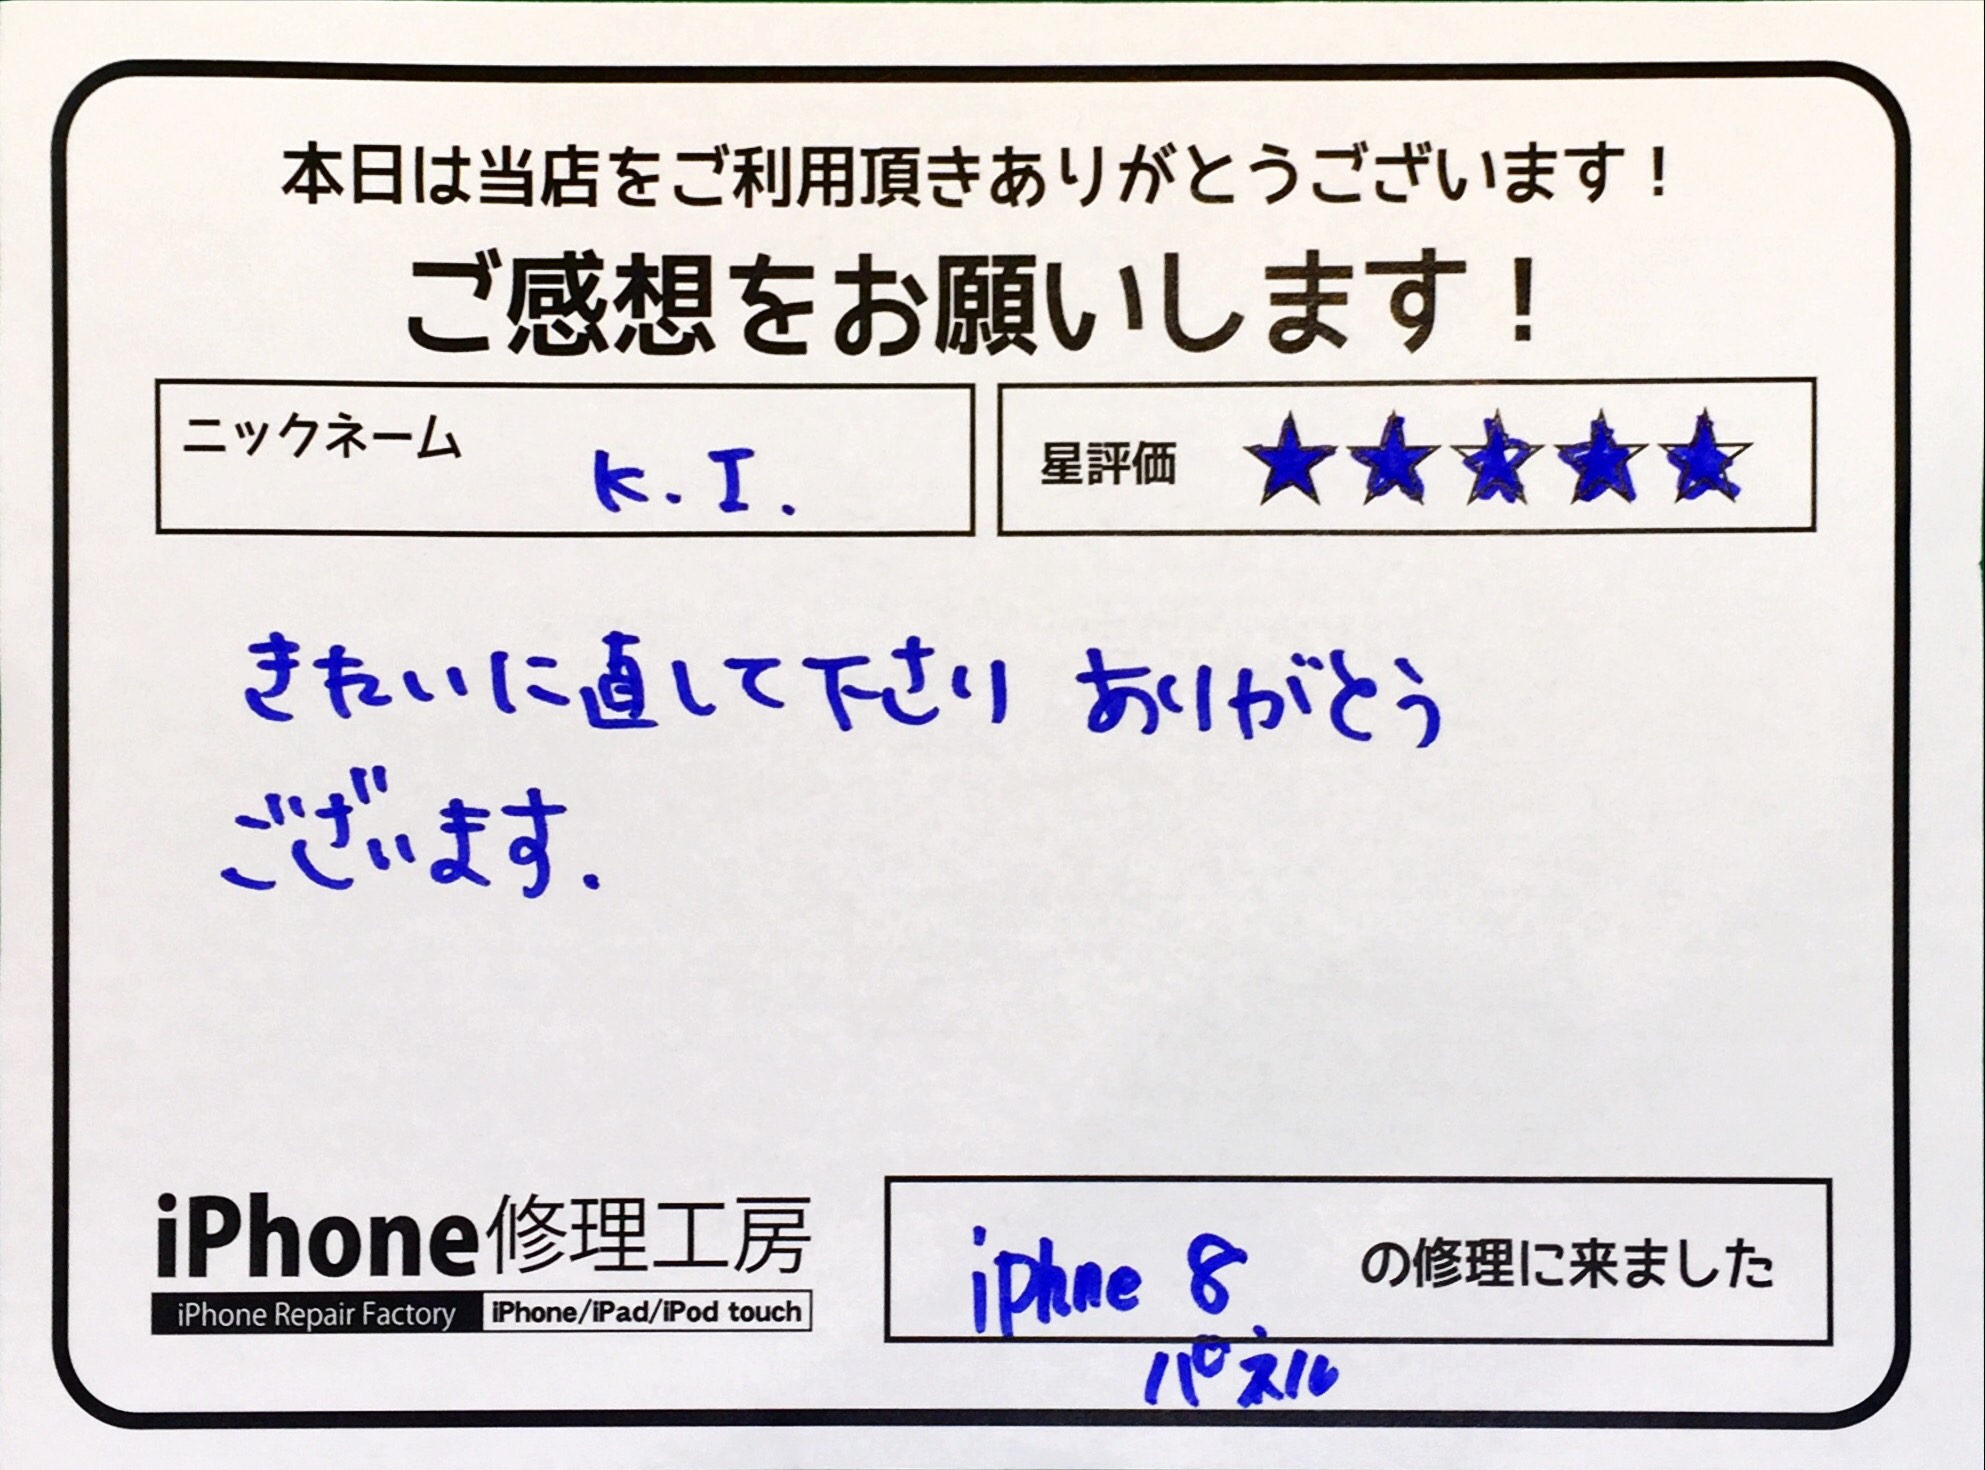 本日は当店をご利用頂きありがとうございます！
ご感想をお願いします！
ニックネーム K.I.
星評価 ★★★★★
きれいに直して下さり ありがとう
ございます.
iPhone修理工房
iPhone Repair Factory iPhone/iPad/iPod touch
iphne 8 の修理に来ました
パネル